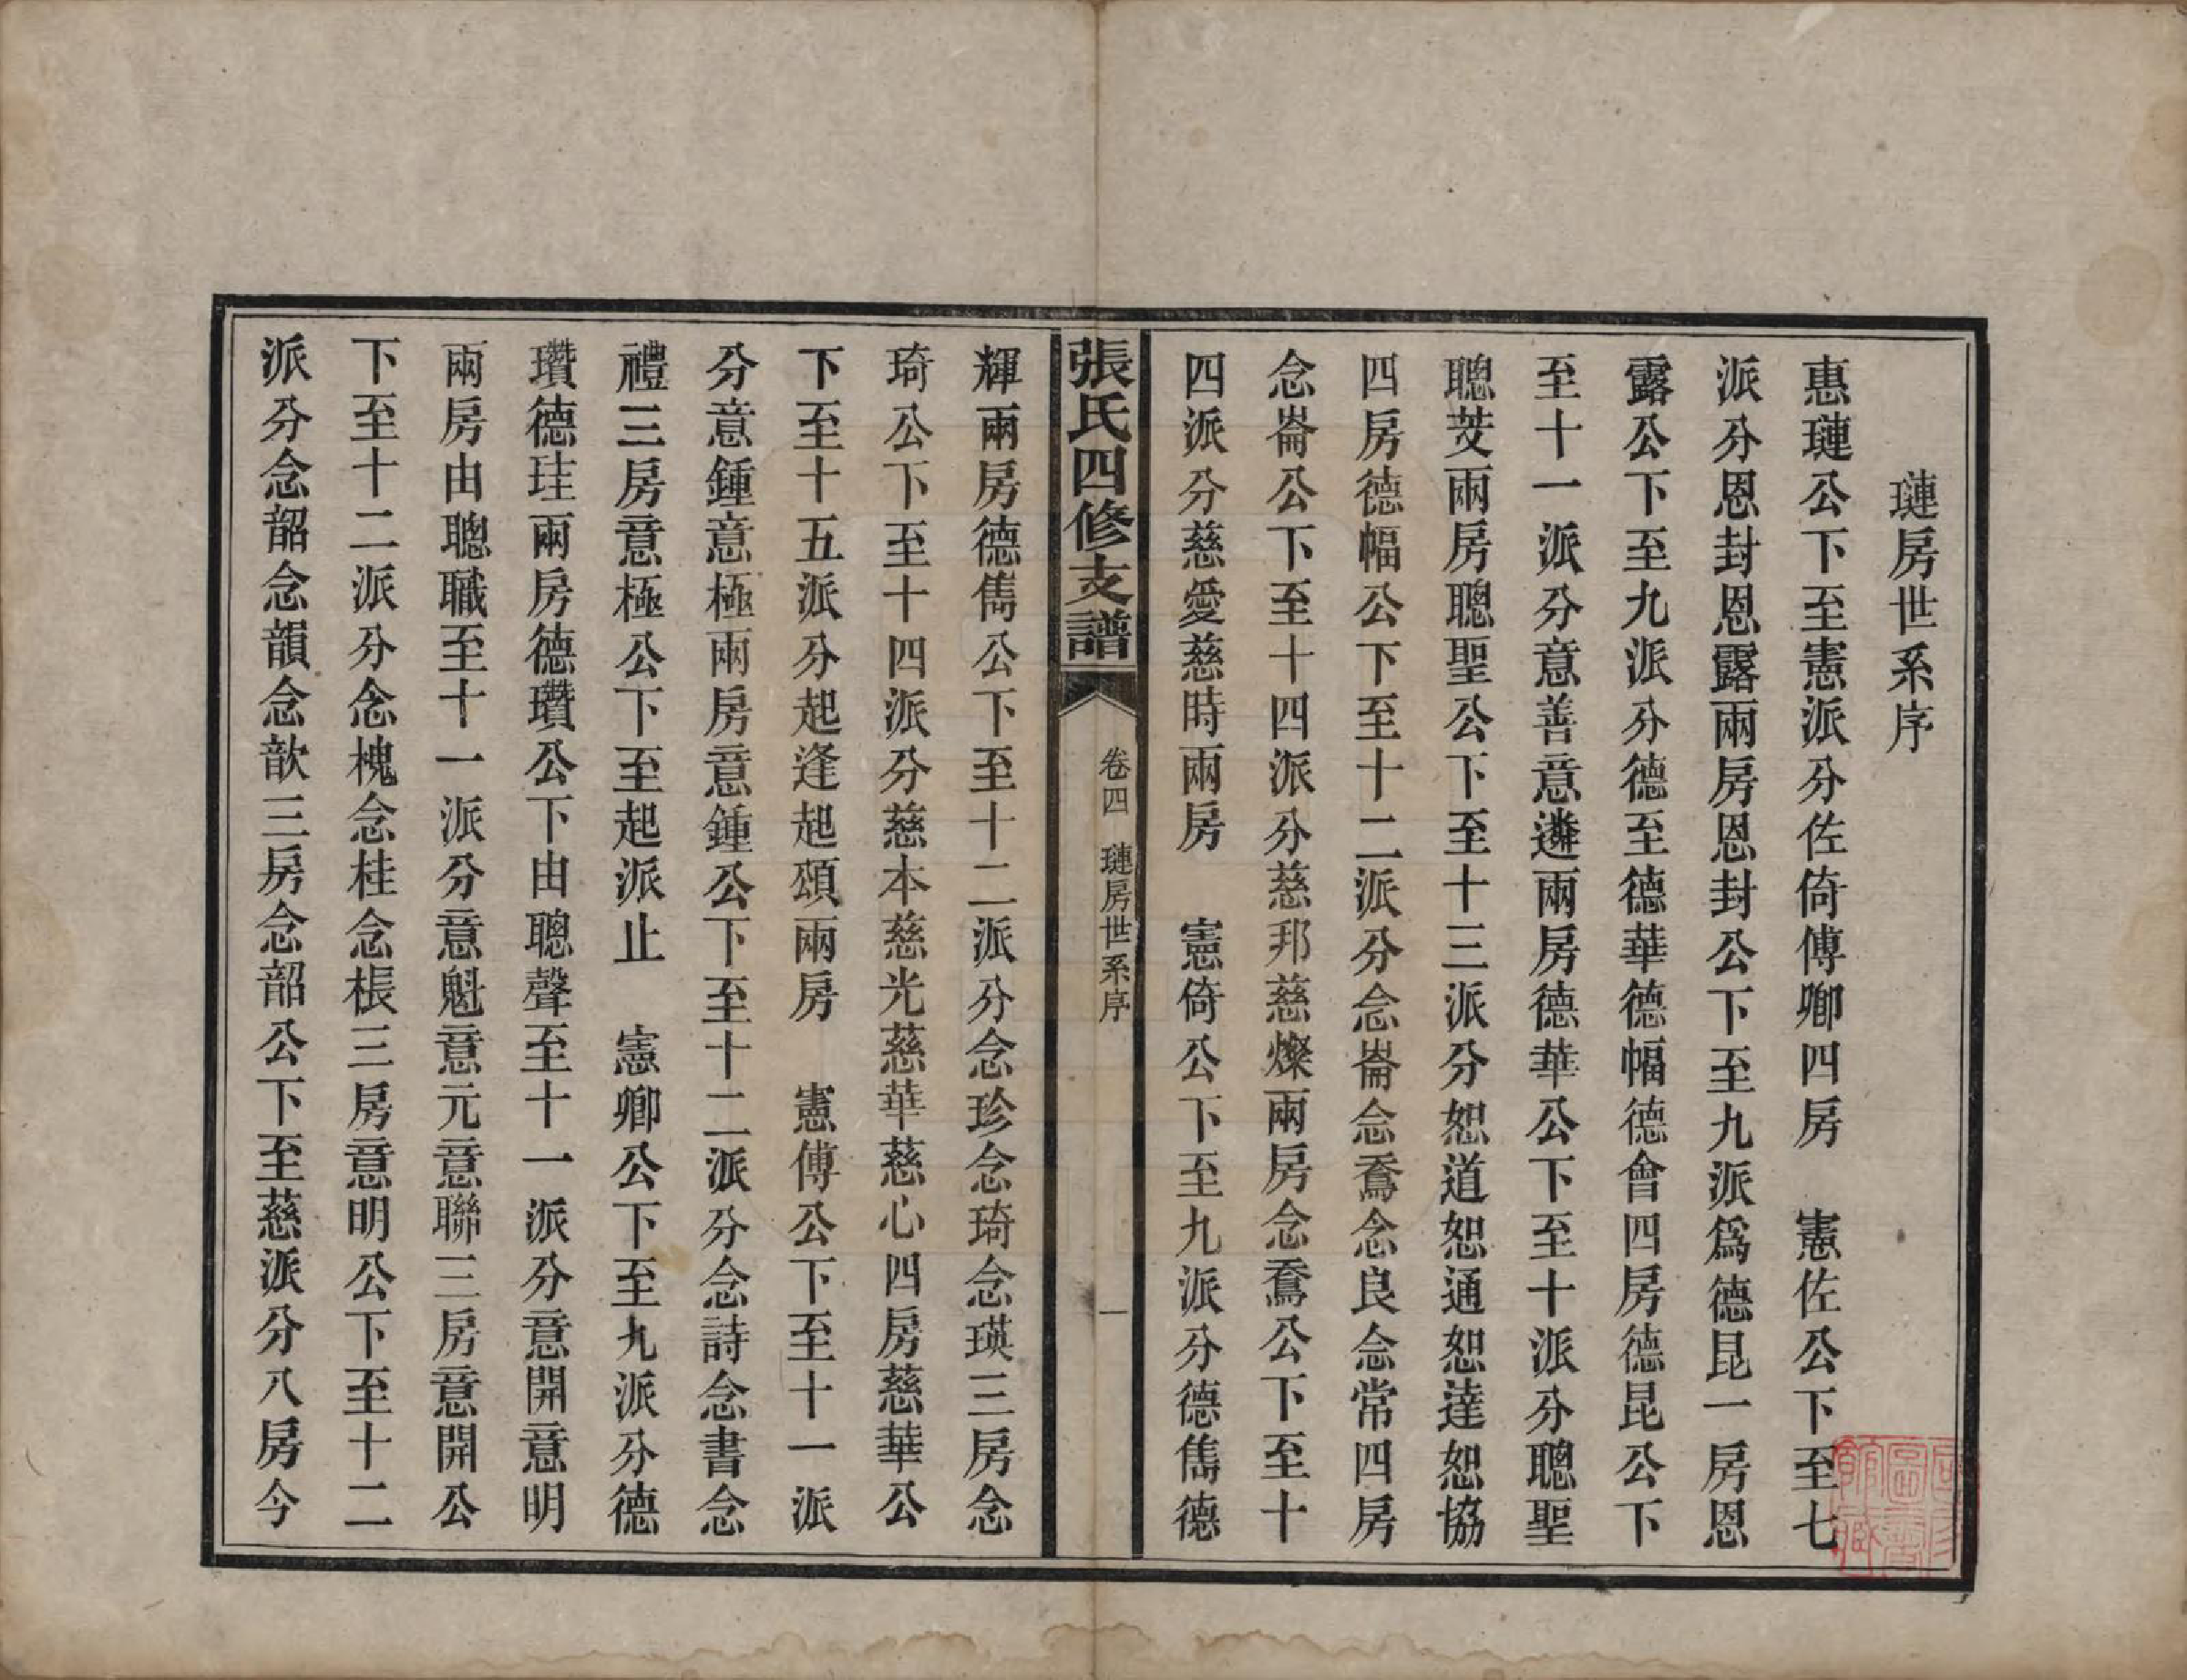 璉房世系序
惠璉公下至憲派分佐倚傅卿四房　憲佐公下至七
派分恩封恩露兩房恩封公下至九派爲德昆一房恩
露公下至九派分德至德華德幅德會四房德昆公下
至十一派分意善意遴兩房德華公下至十派分聰聖
聰芠兩房聰聖公下至十三派分恕道恕通恕達恕協
四房德幅公下至十二派分念崙念鴌念良念常四房
念崙公下至十四派分慈邦慈燦兩房念鴌公下至十
四派分慈愛慈時兩房　憲倚公下至九派分德儁德
張氏四修支譜
卷四　璉房世系序
一
輝兩房德儁公下至十二派分念珍念琦念瑛三房念
琦公下至十四派分慈本慈光慈華慈心四房慈華公
下至十五派分起逢起頌兩房　憲傅公下至十一派
分意鍾意極兩房意鍾公下至十二派分念詩念書念
禮三房意極公下至起派止　憲卿公下至九派分德
瓚德珪兩房德瓚公下由聰聲至十一派分意開意明
兩房由聰職至十一派分意魁意元意聯三房意開公
下至十二派分念槐念桂念棖三房意明公下至十二
派分念韶念韻念歆三房念韶公下至慈派分八房今